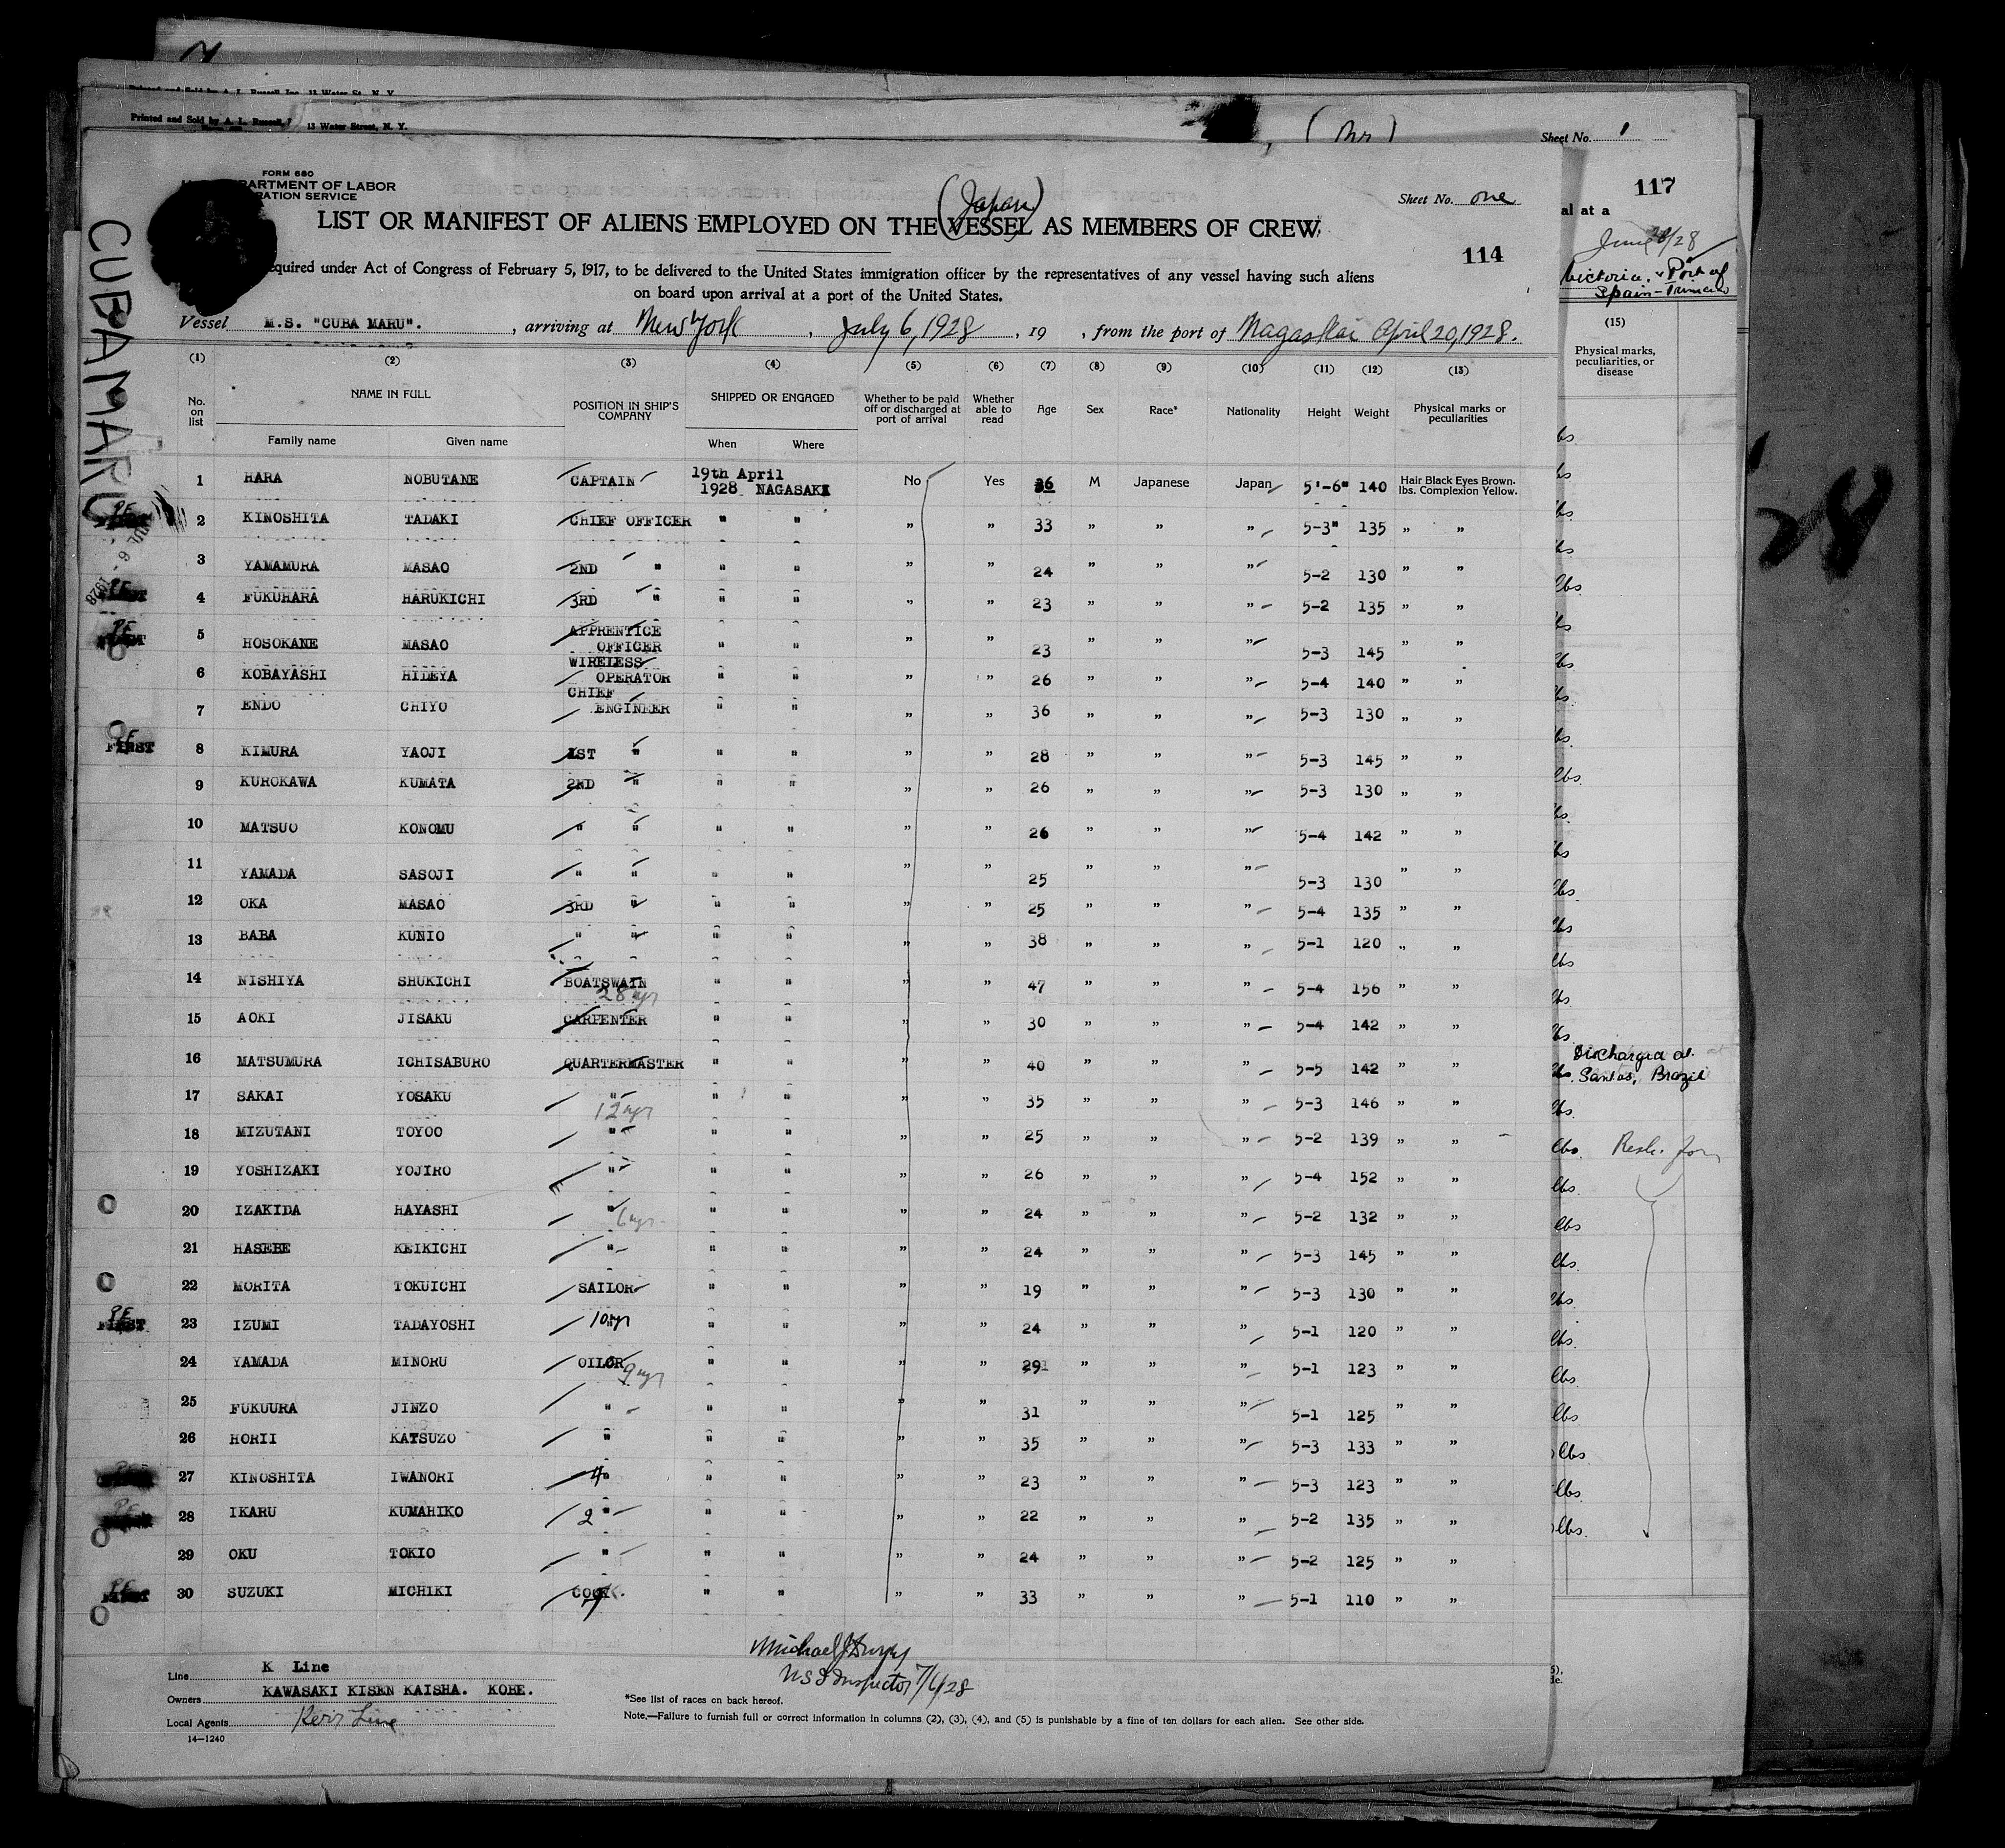 Printed and Sold by A. L. Russell, 13 Water Street, N. Y.
Sheet No. 1
FORM 680
DEPARTMENT OF LABOR
RATION SERVICE
Sheet No. one
117
al at a
(Japan)
LIST OR MANIFEST OF ALIENS EMPLOYED ON THE VESSEL AS MEMBERS OF CREW
114
equired under Act of Congress of February 5, 1917, to be delivered to the United States immigration officer by the representatives of any vessel having such aliens
on board upon arrival at a port of the United States.
CUBA MARU
Victoria, Port of
Spain - Trinidad
Vessel M.S. "CUBA MARU". , arriving at New York , July 6, 1928 , 19 , from the port of Nagasaki April 20, 1928.
(1) (2) (3) (4) (5) (6) (7) (8) (9) (10) (11) (12) (13)
No. on list NAME IN FULL POSITION IN SHIP'S COMPANY SHIPPED OR ENGAGED Whether to be paid off or discharged at port of arrival Whether able to read Age Sex Race* Nationality Height Weight Physical marks or peculiarities
Family name Given name When Where
(15)
Physical marks, peculiarities, or disease
1 HARA NOBUTANE CAPTAIN 19th April 1928 NAGASAKI No Yes 36 M Japanese Japan 5'-6" 140 lbs. Hair Black Eyes Brown. Complexion Yellow.
2 KINOSHITA TADAKI CHIEF OFFICER " " " " 33 " " " 5-3" 135 " "
3 YAMAMURA MASAO 2ND " " " " " 24 " " " 5-2 130 " "
4 FUKUHARA HARUKICHI 3RD " " " " " 23 " " " 5-2 135 " "
5 HOSOKANE MASAO APPRENTICE OFFICER " " " " 23 " " " 5-3 145 " "
6 KOBAYASHI HIDEYA WIRELESS OPERATOR " " " " 26 " " " 5-4 140 " "
7 ENDO CHIYO CHIEF ENGINEER " " " " 36 " " " 5-3 130 " "
FIRST 8 KIMURA YAOJI 1ST " " " " " 28 " " " 5-3 145 " "
9 KUROKAWA KUMATA 2ND " " " " " 26 " " " 5-3 130 " "
10 MATSUO KONOMU " " " " " " 26 " " " 5-4 142 " "
11 YAMADA SASOJI " " " " " " 25 " " " 5-3 130 " "
12 OKA MASAO 3RD " " " " " 25 " " " 5-4 135 " "
13 BABA KUNIO " " " " " " 38 " " " 5-1 120 " "
14 NISHIYA SHUKICHI BOATSWAIN 28 yr " " " " 47 " " " 5-4 156 " "
15 AOKI JISAKU CARPENTER " " " " 30 " " " 5-4 142 " "
16 MATSUMURA ICHISABURO QUARTERMASTER " " " " 40 " " " 5-5 142 " "
Discharged at
Santos, Brazil
17 SAKAI YOSAKU " 12 yr " " " " 35 " " " 5-3 146 " "
18 MIZUTANI TOYOO " " " " " 25 " " " 5-2 139 " "
19 YOSHIZAKI YOJIRO " " " " " 26 " " " 5-4 152 " "
20 IZAKIDA HAYASHI " 6 yr " " " " 24 " " " 5-2 132 " "
21 HASEBE KEIKICHI " " " " " 24 " " " 5-3 145 " "
22 MORITA TOKUICHI SAILOR " " " " 19 " " " 5-3 130 " "
FIRST 23 IZUMI TADAYOSHI " 10 yr " " " " 24 " " " 5-1 120 " "
24 YAMADA MINORU OILOR 9 yr " " " " 29 " " " 5-1 123 " "
25 FUKUURA JINZO " " " " " 31 " " " 5-1 125 " "
26 HORII KATSUZO " " " " " 35 " " " 5-3 133 " "
27 KINOSHITA IWANORI 4 " " " " " 23 " " " 5-3 123 " "
28 IKARU KUMAHIKO 2 " " " " " 22 " " " 5-2 135 " "
29 OKU TOKIO " " " " " 24 " " " 5-2 125 " "
30 SUZUKI MICHIKI COOK " " " " 33 " " " 5-1 110 " "
Line K Line
Owners KAWASAKI KISEN KAISHA. KOBE.
Local Agents Kerr Line
14—1240
US I Inspector 7/6/28
*See list of races on back hereof.
Note.—Failure to furnish full or correct information in columns (2), (3), (4), and (5) is punishable by a fine of ten dollars for each alien. See other side.